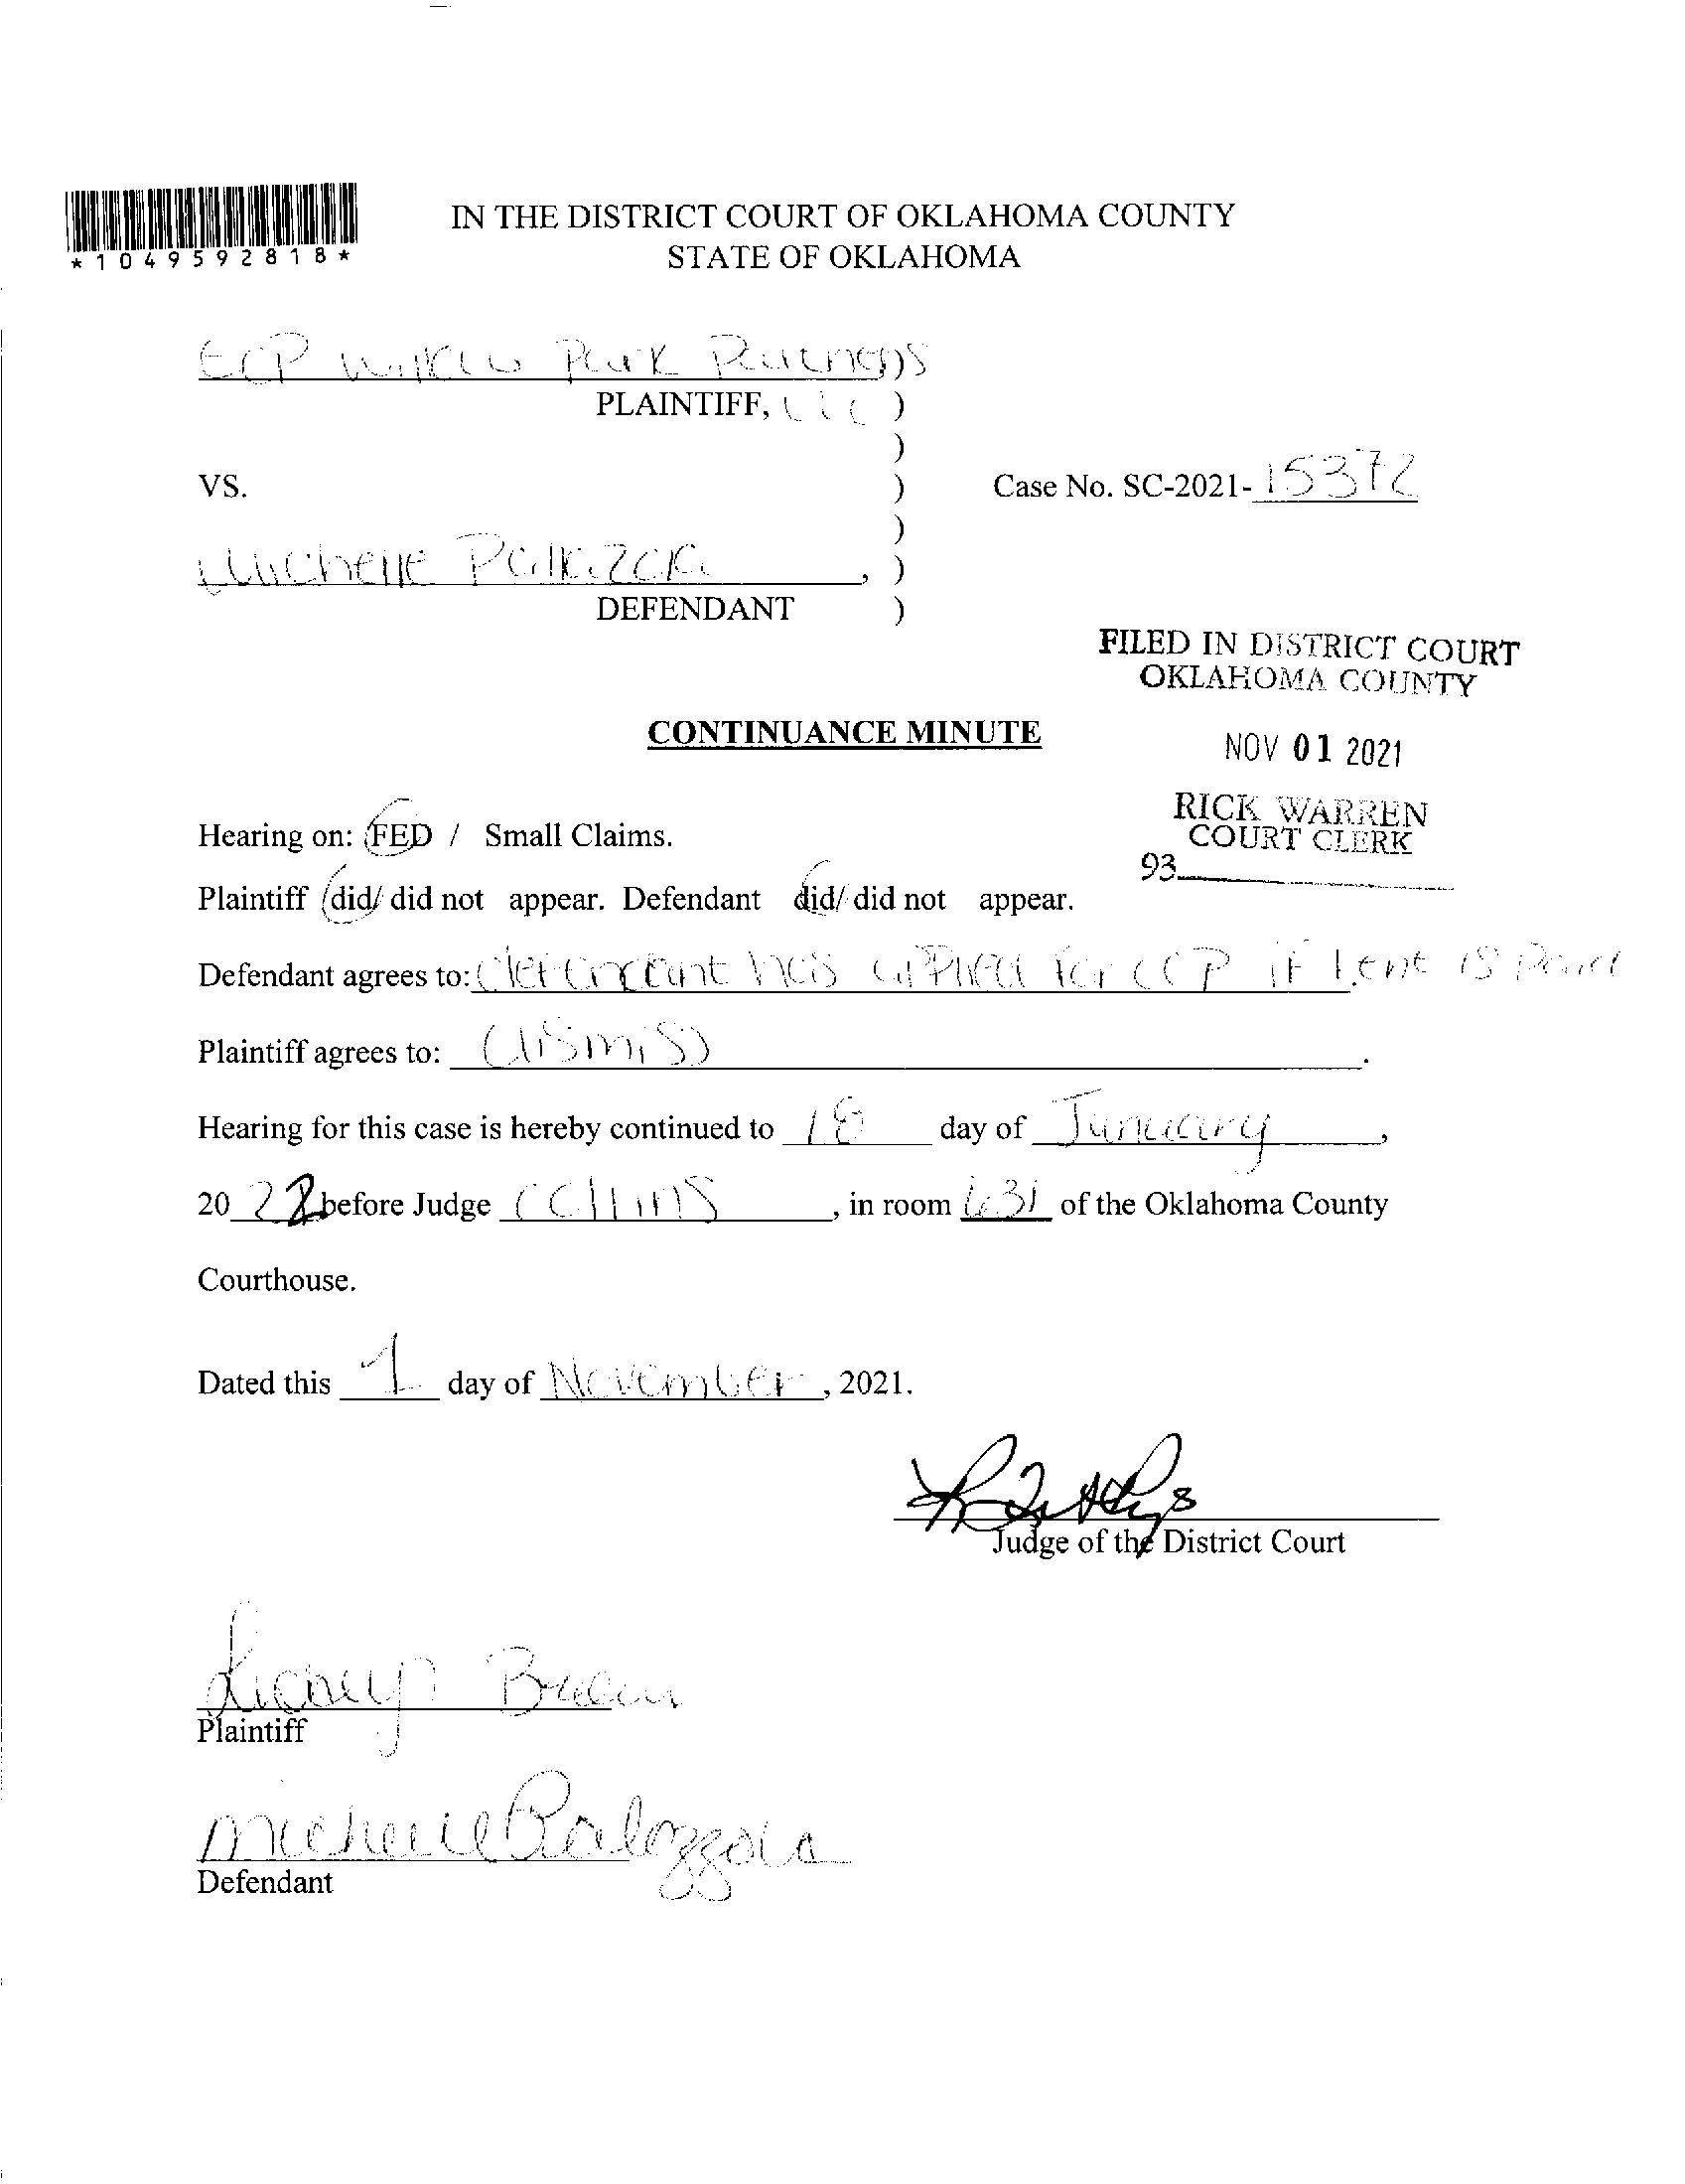 *1049592818*
IN THE DISTRICT COURT OF OKLAHOMA COUNTY
STATE OF OKLAHOMA
ECP Park Partners
PLAINTIFF, LLC )
)
VS. ) Case No. SC-2021-15372
)
Michelle , )
DEFENDANT )
FILED IN DISTRICT COURT
OKLAHOMA COUNTY
CONTINUANCE MINUTE
NOV 01 2021
RICK WARREN
COURT CLERK
93
Hearing on: FED / Small Claims.
Plaintiff did/ did not appear. Defendant did/ did not appear.
Defendant agrees to: defendant has applied for CCP if rent is paid.
Plaintiff agrees to: dismiss.
Hearing for this case is hereby continued to 18 day of January,
2022 before Judge Collins, in room 631 of the Oklahoma County
Courthouse.
Dated this 1 day of November, 2021.
Judge of the District Court
Plaintiff
Michelle
Defendant